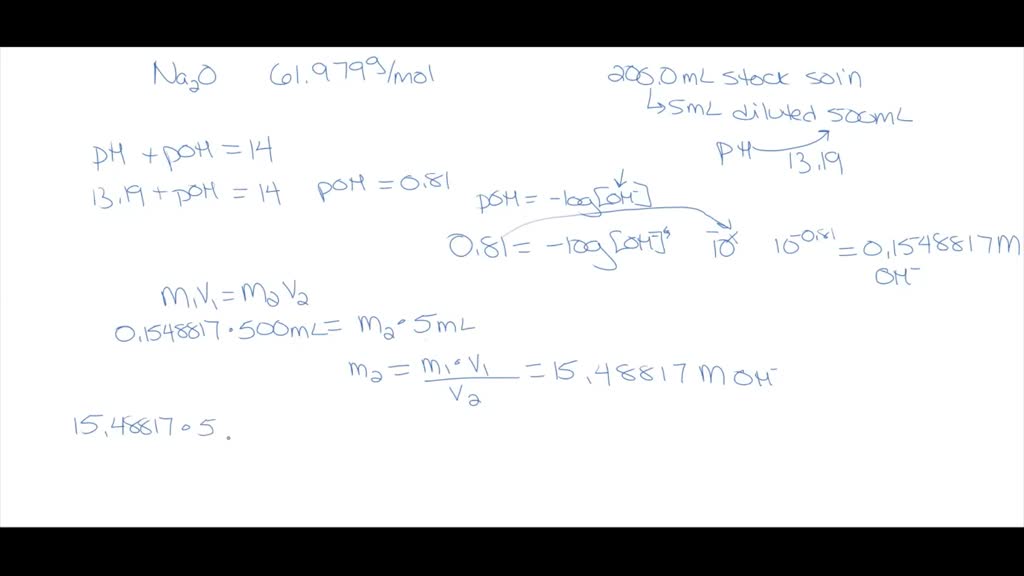 Na₂O 61.979g/mol
206.0mL stock soln
↳5mL diluted 500mL
pH 13.19
pH + pOH = 14
13.19 + pOH = 14 pOH = 0.81
pOH = -log[OH⁻]
0.81 = -log[OH⁻] 10ˣ 10^-0.81 = 0.1548817M
OH⁻
M₁V₁ = M₂V₂
0.1548817 • 500mL = M₂ • 5mL
M₂ = M₁ • V₁ / V₂ = 15.48817 M OH⁻
15.48817 • 5 .